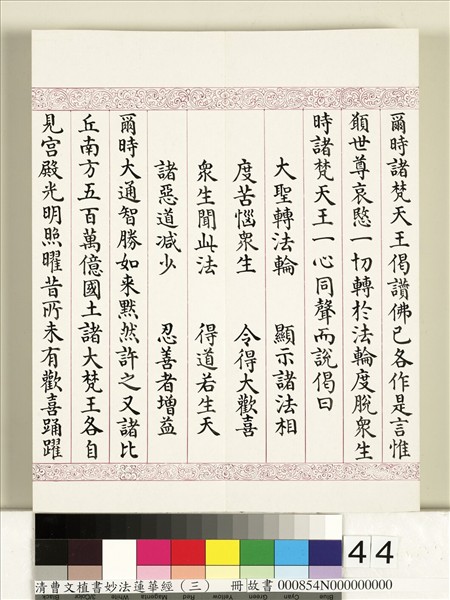 爾時諸梵天王偈讚佛已各作是言惟
願世尊哀愍一切轉於法輪度脫衆生
時諸梵天王一心同聲而說偈曰
大聖轉法輪　顯示諸法相
度苦惱衆生　令得大歡喜
衆生聞此法　得道若生天
諸惡道減少　忍善者增益
爾時大通智勝如來默然許之又諸比
丘南方五百萬億國土諸大梵王各自
見宮殿光明照曜昔所未有歡喜踊躍
44
清曹文植書妙法蓮華經（三）　冊 故書 000854N000000000
Black 3/Color White Magenta Red Yellow Green Cyan Blue